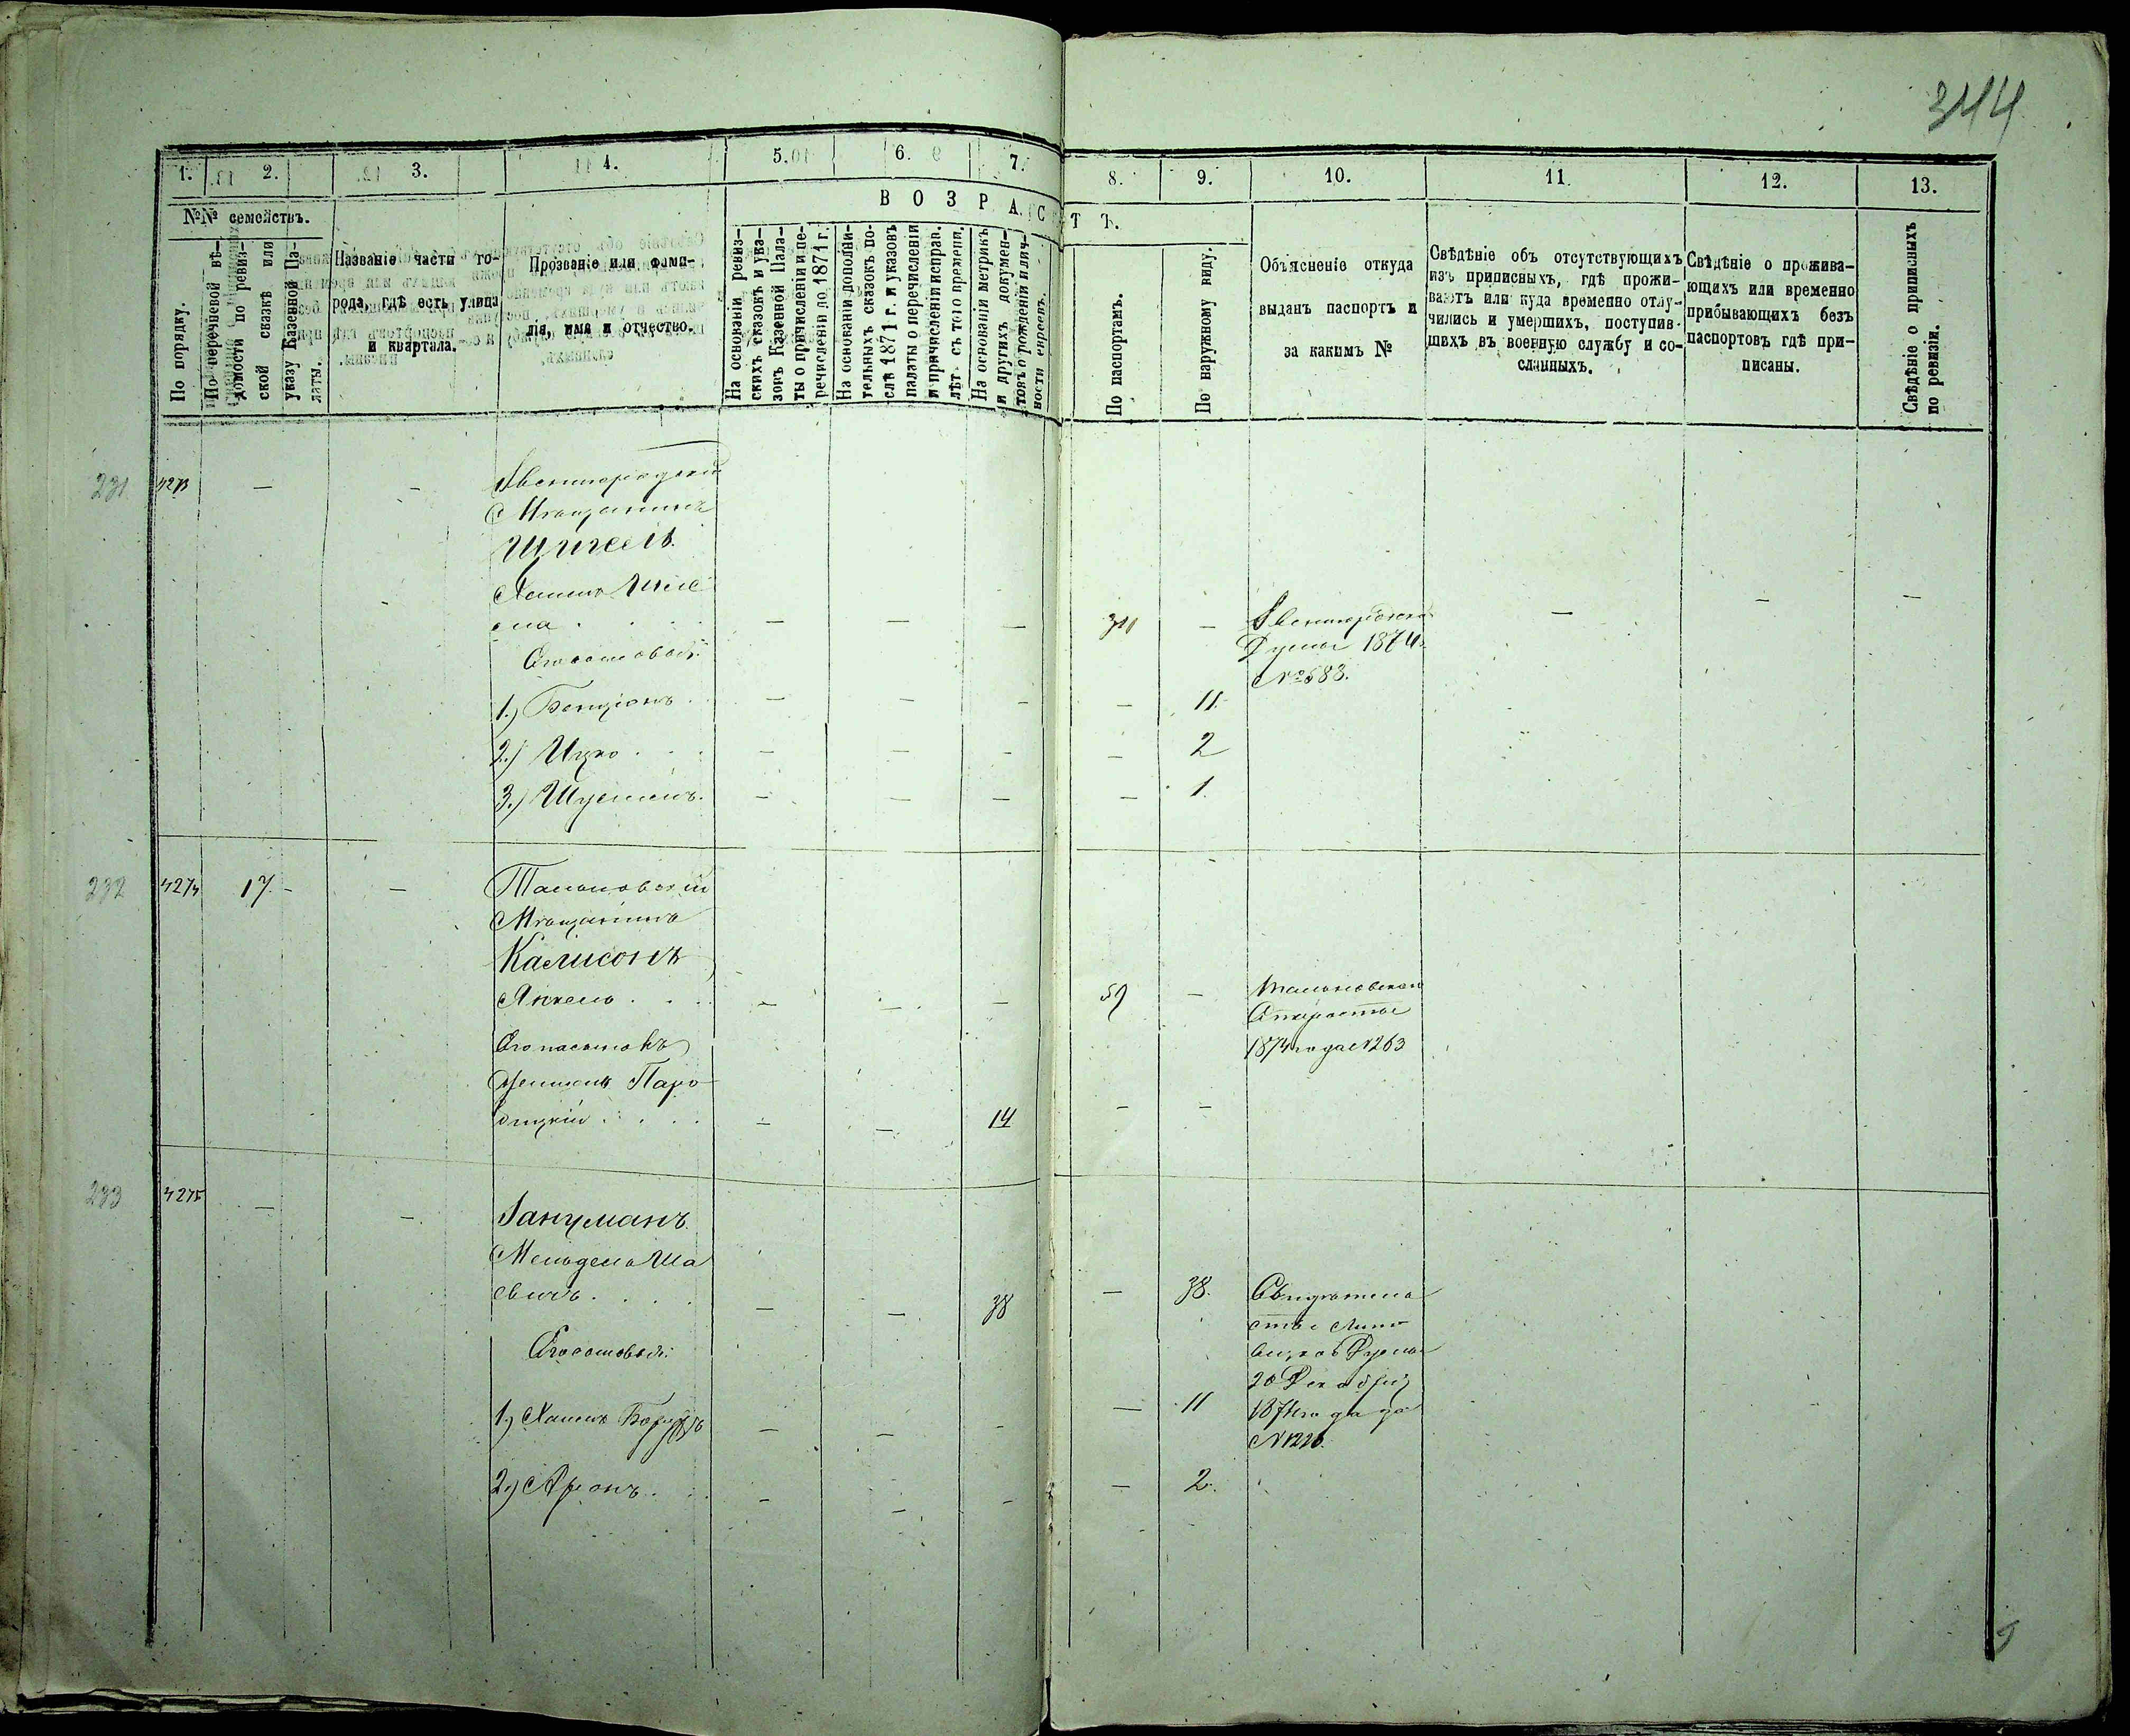 344
1. 2. 3. 4. 5. 6. 7. 8. 9. 10. 11. 12. 13.
№№ семействъ.
В О З Р А С Т Ъ.
По порядку.
По перечневой вѣ-
домости по ревиз-
ской сказкѣ или
указу Казенной Па-
латы.
Названіе части го-
рода, гдѣ есть улица
и квартала.
Прозваніе или фами-
лія, имя и отчество.
На основаніи ревиз-
скихъ сказокъ и ука-
зовъ Казенной Пала-
ты о причисленіи и пе-
речисленіи до 1871 г.
На основаніи дополни-
тельныхъ сказокъ по-
слѣ 1871 г. и указовъ
палаты о перечисленіи
и причисленіи исправ.
лѣт съ того времени.
На основаніи метрикъ
и другихъ докумен-
товъ о рожденіи и лич-
ности евреевъ.
По паспортамъ.
По наружному виду.
Объясненіе откуда
выданъ паспортъ и
за какимъ №
Свѣдѣніе объ отсутствующихъ
изъ приписныхъ, гдѣ прожи-
ваютъ или куда временно отлу-
чились и умершихъ, поступив-
шихъ въ военную службу и со-
сланныхъ.
Свѣдѣніе о прожива-
ющихъ или временно
прибывающихъ безъ
паспортовъ гдѣ при-
писаны.
Свѣдѣніе о приписныхъ
по ревизіи.
231 4273 — —
Звенигородскій
Мѣщанинъ
Хаимъ
— — — — — — —
Звенигородской
Думы 1874
№ 583.
Его сыновья:
1.) Бенціонъ — — — — 11.
2.) Ицко — — — — 2
3.) — — — — 1.
232 4274 17. — —
Тальновскій
Мѣщанинъ
Калисонъ
Янкель — — — 59 —
Тальновскаго
Старосты
1874 года № 263
Его пасынокъ
— — 14 — —
233 4275 — —
Ганцманъ
— — 38 — 38.
Свидѣтель
ство Липо
вецкой Думы
20 Декабря
1874 года за
№ 1220.
Его сыновья:
1.) Хаимъ — — — — 11
2.) Аронъ — — — — 2.